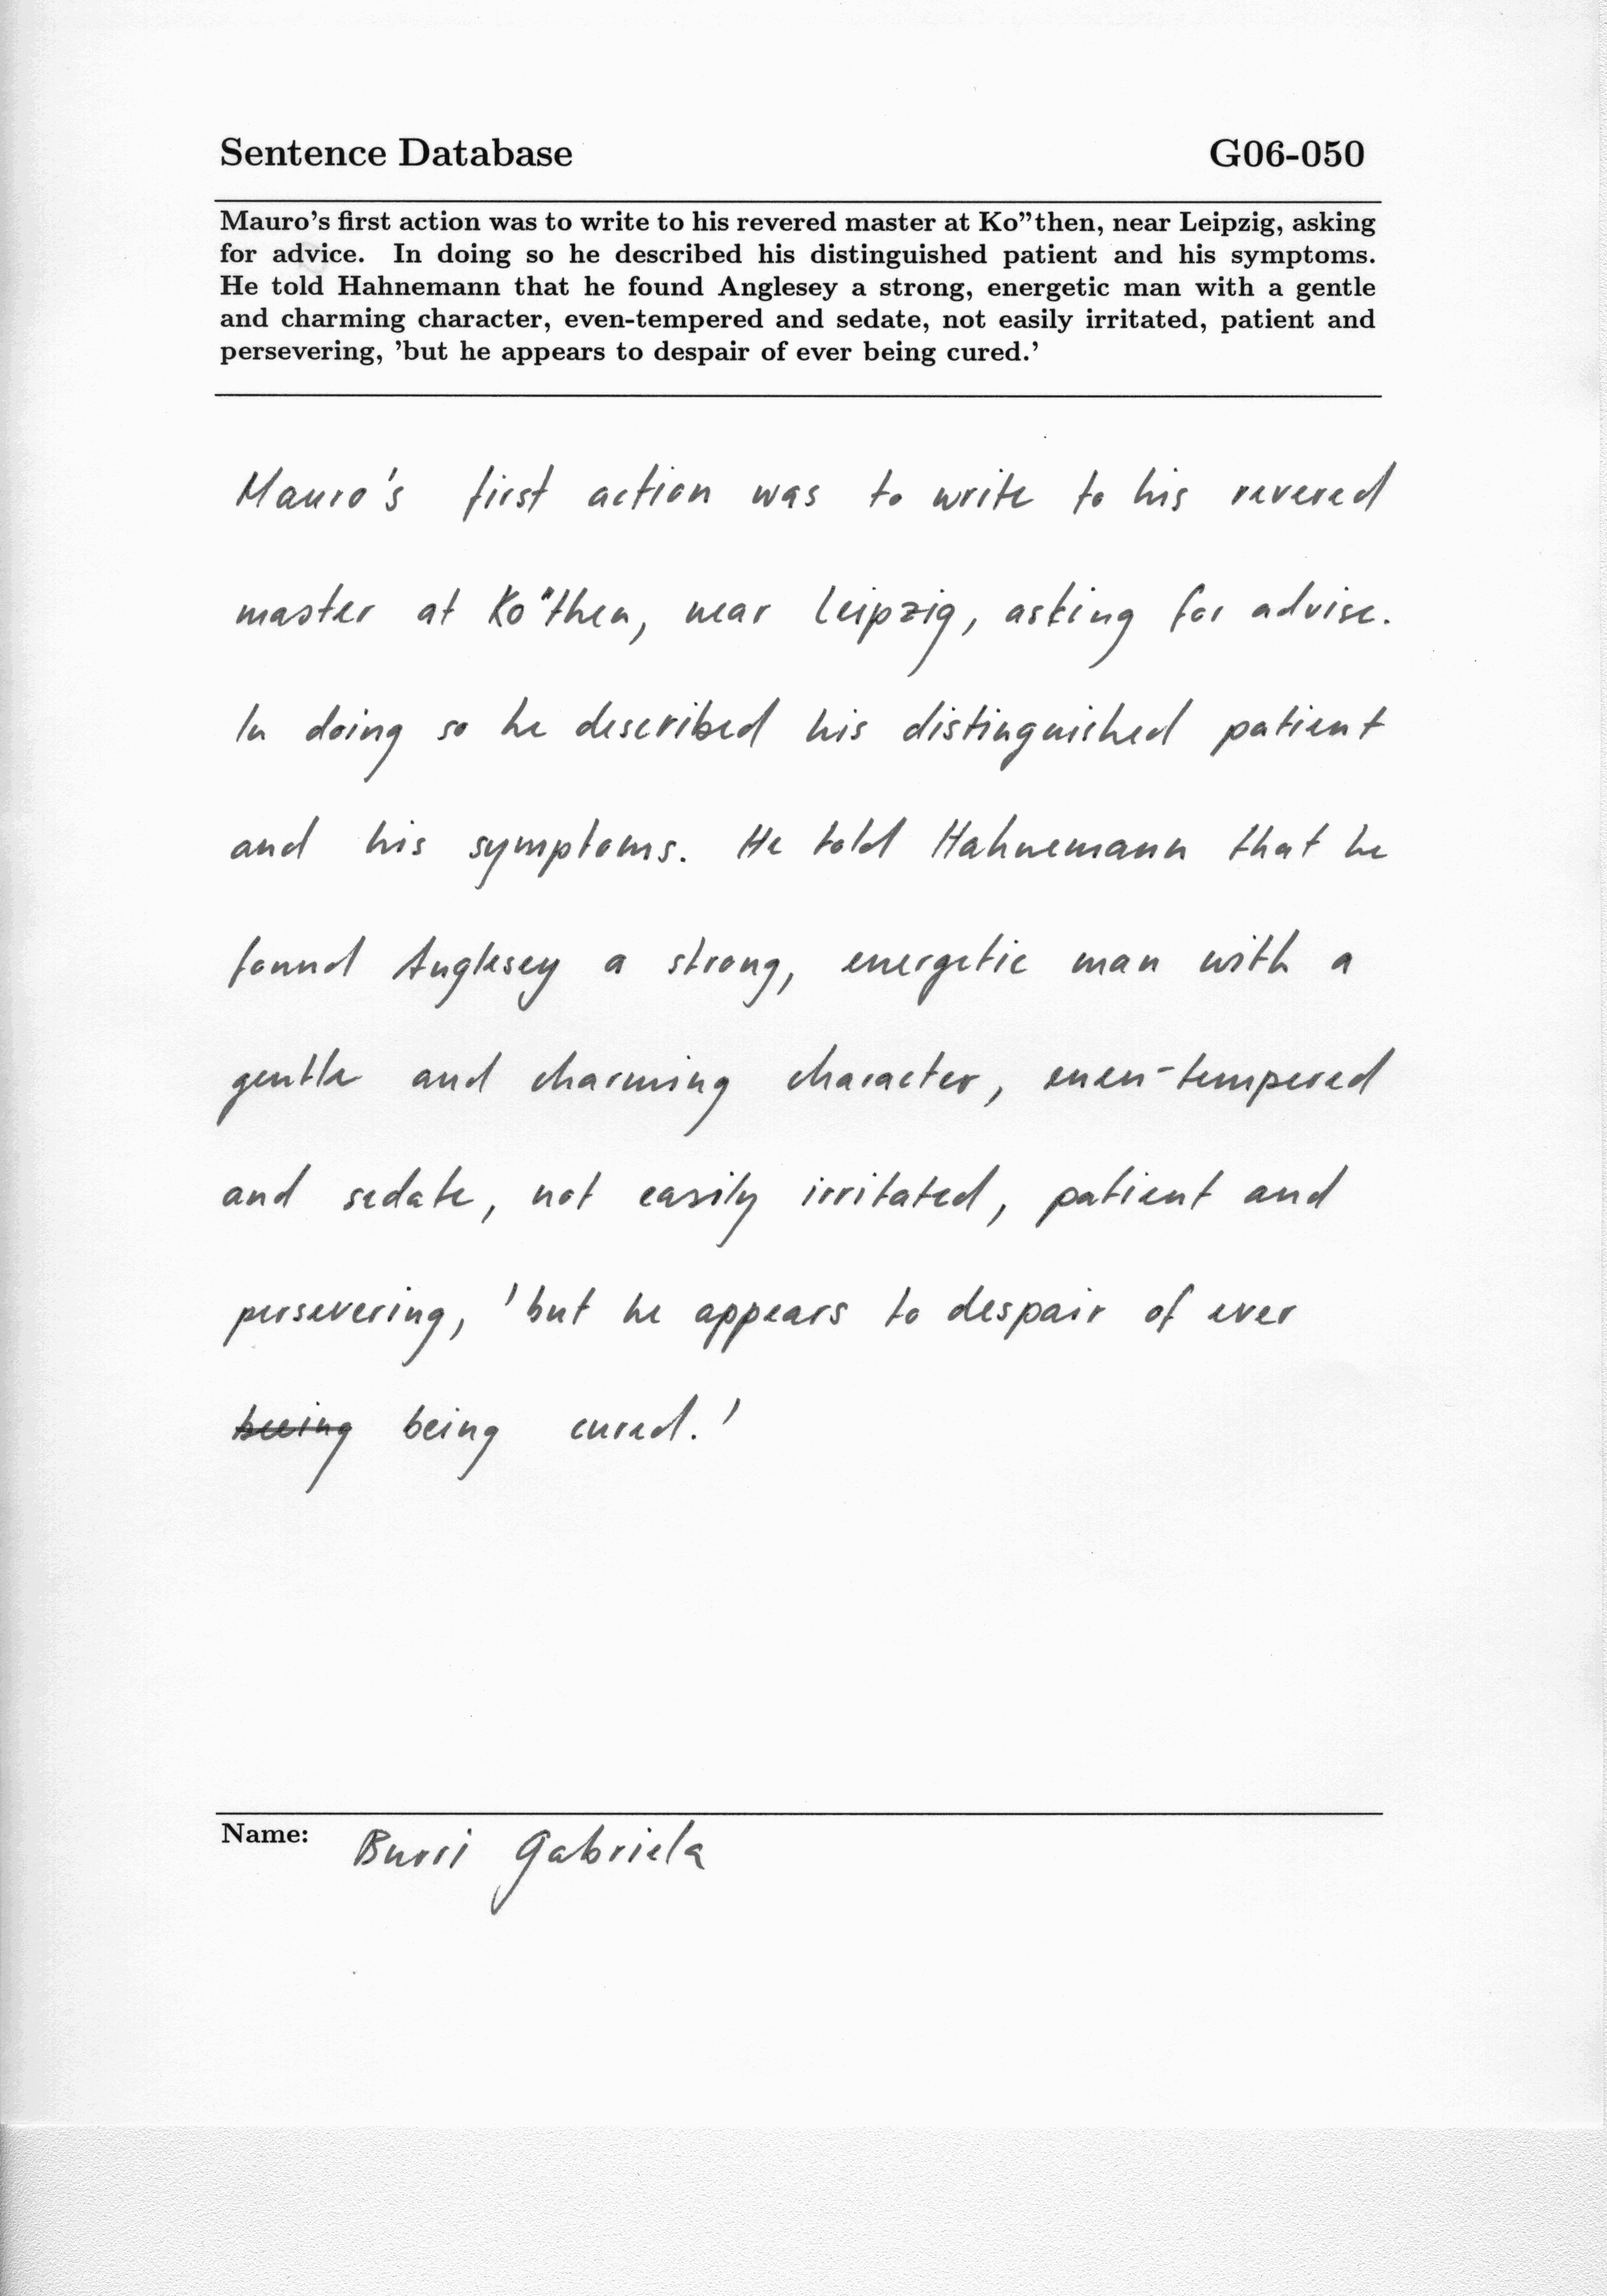 Sentence Database G06-050
Mauro's first action was to write to his revered master at Ko"then, near Leipzig, asking
for advice. In doing so he described his distinguished patient and his symptoms.
He told Hahnemann that he found Anglesey a strong, energetic man with a gentle
and charming character, even-tempered and sedate, not easily irritated, patient and
persevering, 'but he appears to despair of ever being cured.'
Mauro's first action was to write to his revered
master at Ko"then, near Leipzig, asking for advise.
In doing so he described his distinguished patient
and his symptoms. He told Hahnemann that he
found Anglesey a strong, energetic man with a
gentle and charming character, even-tempered
and sedate, not easily irritated, patient and
persevering, 'but he appears to despair of ever
beeing being cured.'
Name: Burri Gabriela